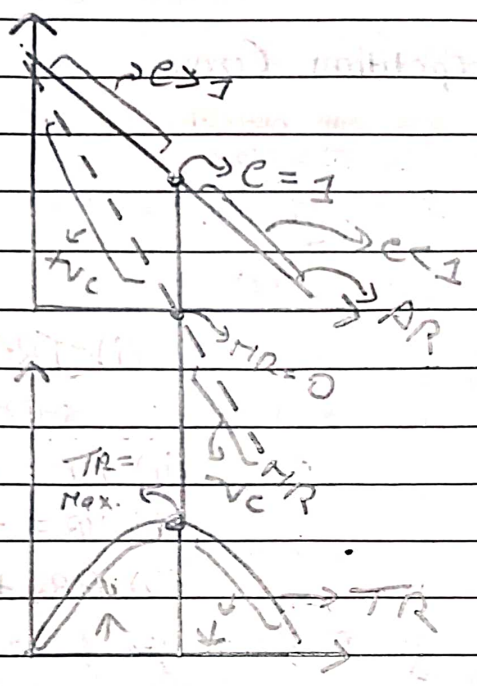 e>1
e=1
e<1
+ve
AR
MR=0
-ve
MR
TR=
Max.
TR